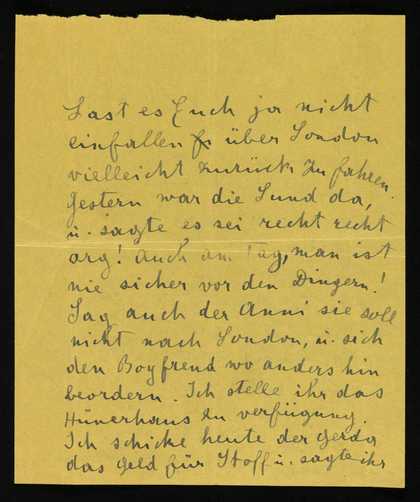 Last es Euch ja nicht
einfallen über London
vielleicht zurück zu fahren.
Gestern war die Lund da,
u. sagte es sei recht recht
arg! auch am Tag, man ist
nie sicher vor den Dingern!
Sag auch der Anni sie soll
nicht nach London, u. sich
den Boyfrend wo anders hin
beordern. Ich stelle ihr das
Hünerhaus zu verfügung.
Ich schicke heute der Gerda
das Geld für Stoff u. sagte ihr